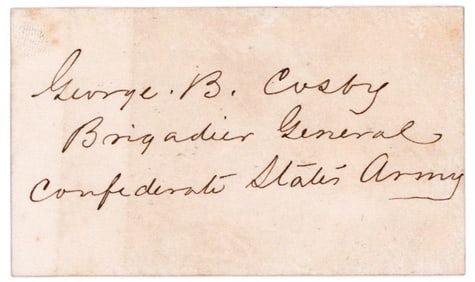 George. B. Cosby
Brigadier General
Confederate States Army